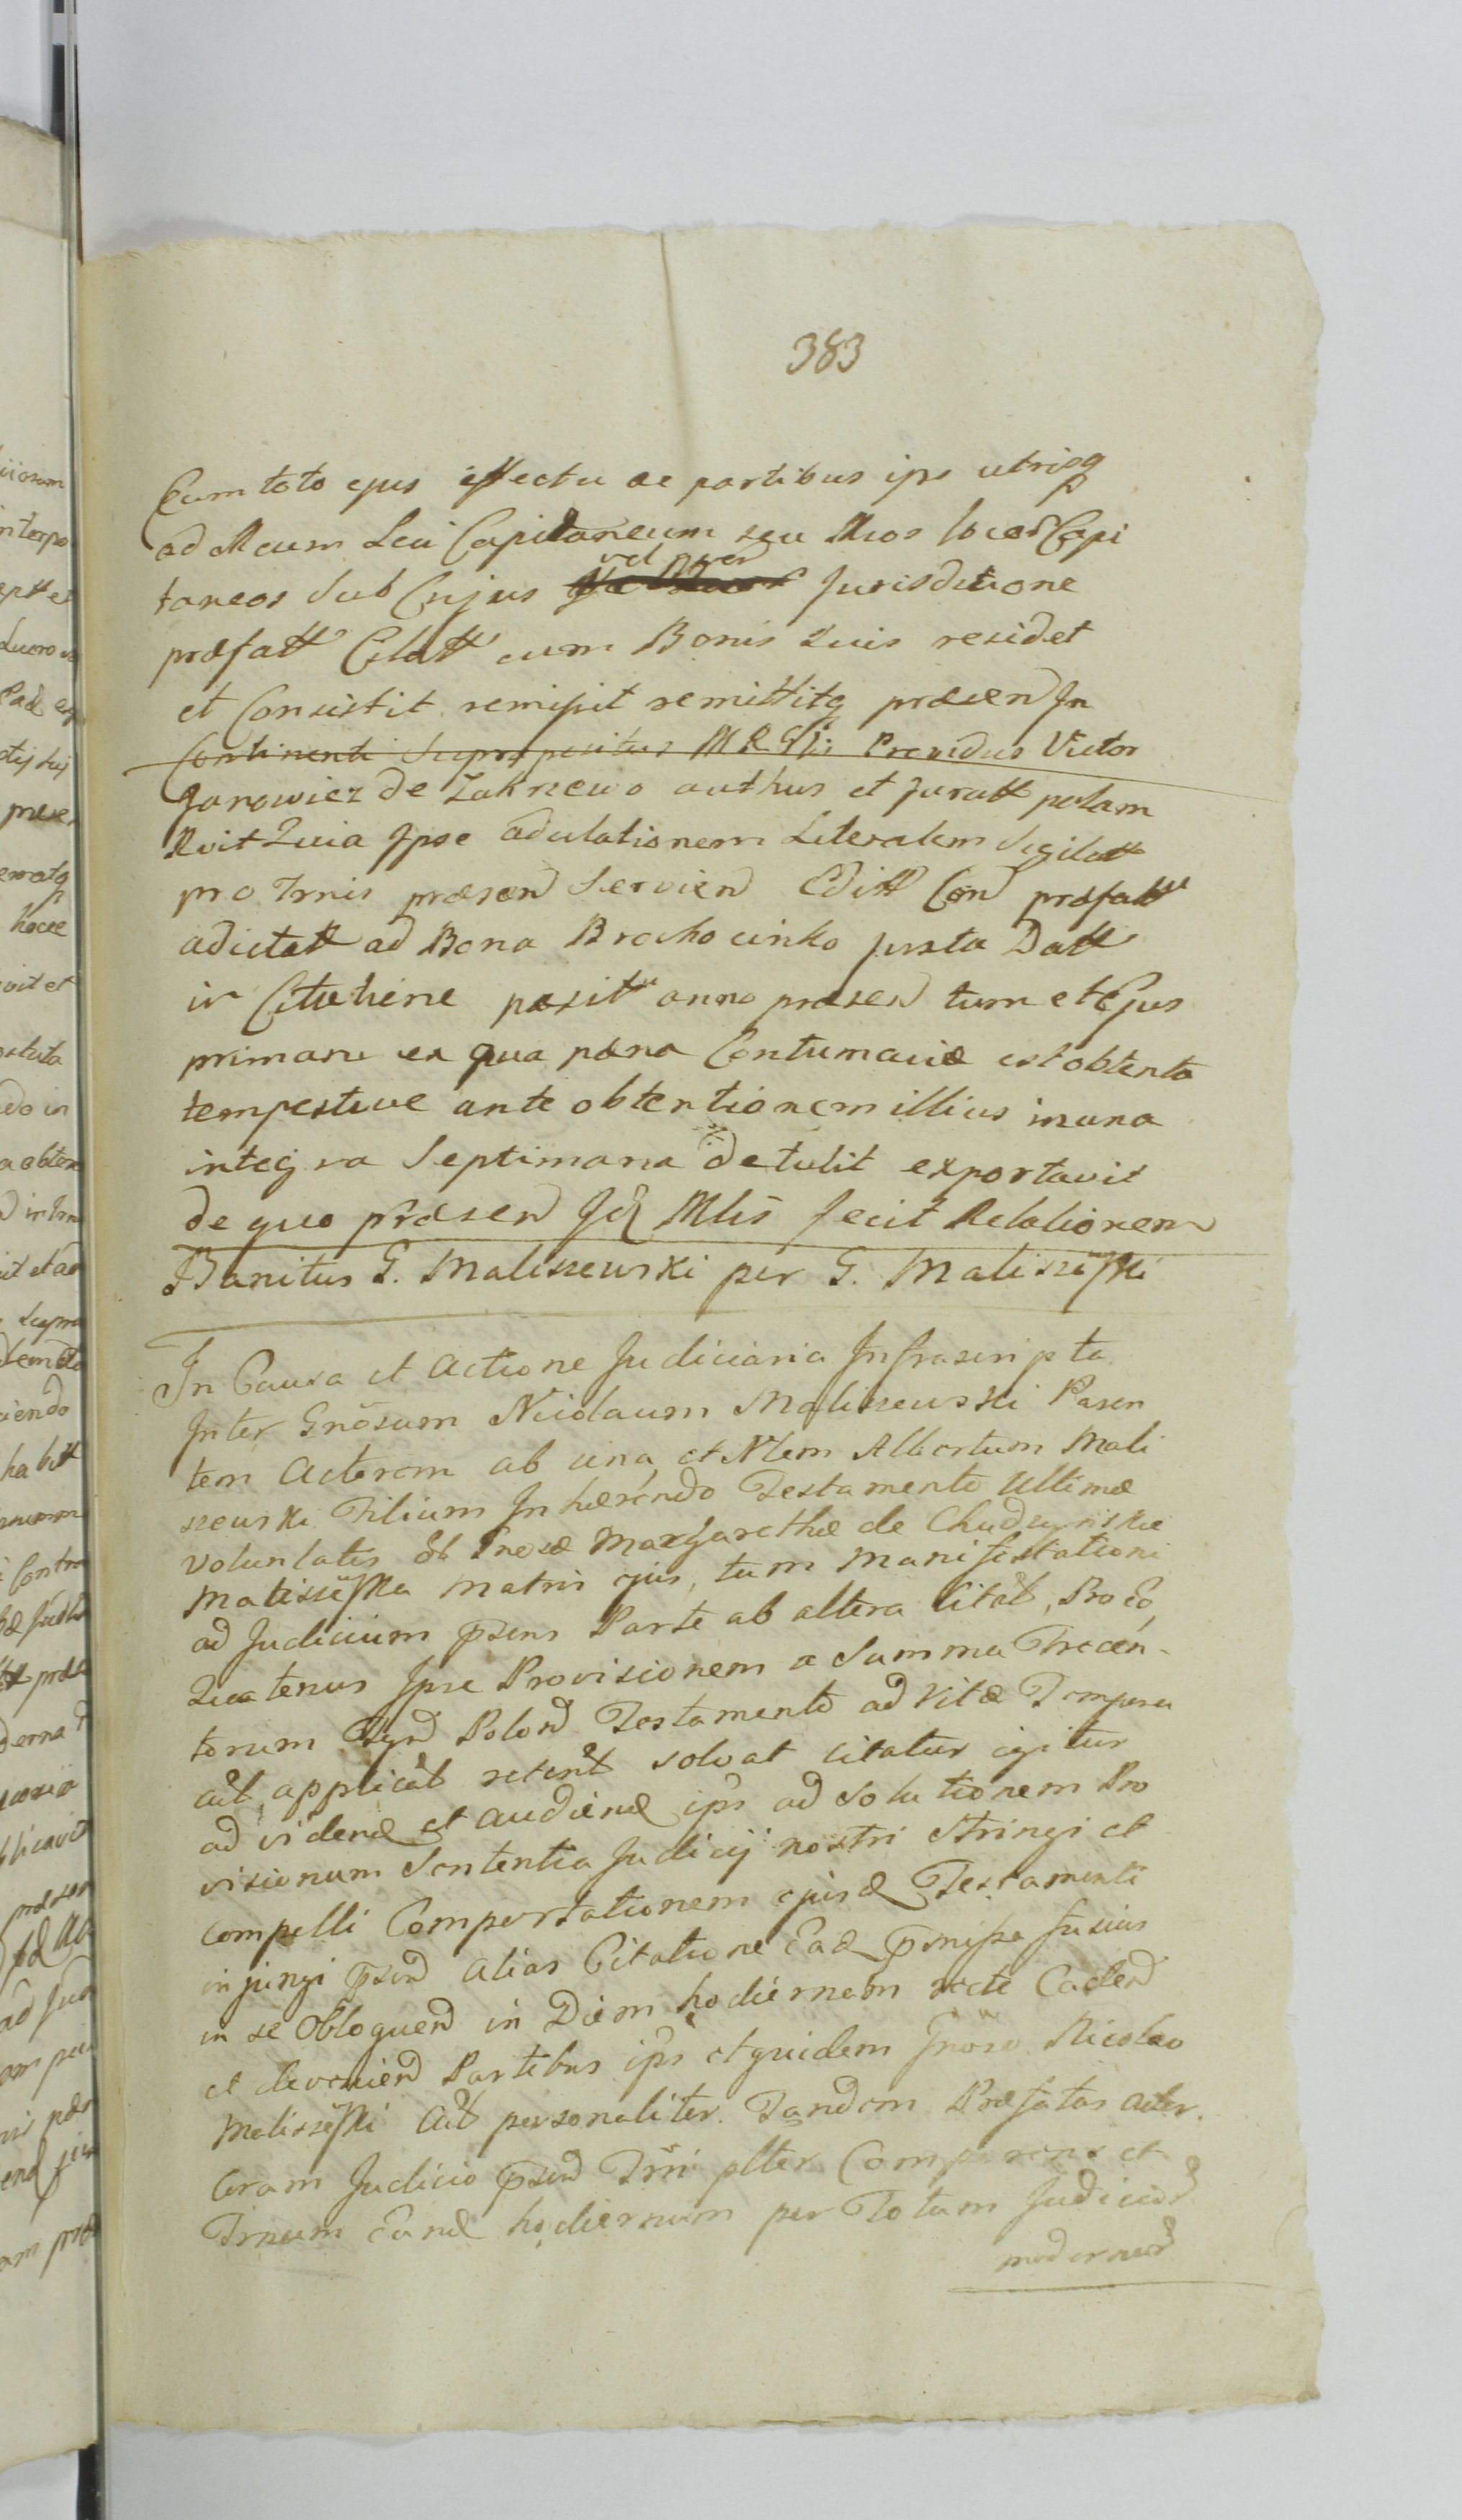 383
Cum toto ejus effectu ac partibus ips utrisq
ad Mcum Seu Capitaneum seu Mcos locor Capi
taneos Sub Cujus vel quor Jurisditione
præfatt Citatt cum Bonis Suis residet
et Consistit remisit remittitq præsen In
Continenti Suprapositus M R Glis Providus Victor
Janowicz de Zakrzewo authus et Juratt palam
Rvit Quia Ipse adcitationem Literalem Sigilatt
pro Trnis præsen Servien Editt Con præfatt
adictatt ad Bona Brochocinko Juxta Datt
in Citatione posit anno præsen tum et Ejus
primam ex qua pæna Contumaciæ est obtenta
tempestive ante obtentionem illius in una
integra Septimana detulit exportavit
de quo præsen Jd Mlis fecit Relationem
Banitus G. Maliszewski per G. Maliszewski
In Causa et Actione Judiciaria Infrascripta
Inter Gnosum Nicolaum Maliszewski Paren
tem Actorem ab una, et Nlem Albertum Mali
szewski Filium Inhærendo Testamento Ultimæ
Voluntatis ol Gnosæ Margarethæ de Chudzynskie
Maliszewska Matris ejus, tum Manifestationi
ad Judicium psens Parte ab altera Citat, Pro Eo,
Quatenus Ipse Provisionem a Summa Trecen-
torum flyn Polon Testamento ad Vitæ Tempora
act applicat retent solvat citatur igitur
ad viden et audien ips ad Solutionem Pro
visionum Sententia Judicij nostri Stringi et
compelli Comportationem ejusd Testamenti
injungi psend alias Citatione Ead pmissa fusius
in se Obloquen in Diem hodiernam recte Caden
et devenien Partibus ips et quidem Gnoso Nicolao
Maliszewski Act personaliter. Tandem Præfatus Actor
Coram Judicio psen Trni plter Comparens et
Trnum Eund hodiernum per Totam Judicior
modernor